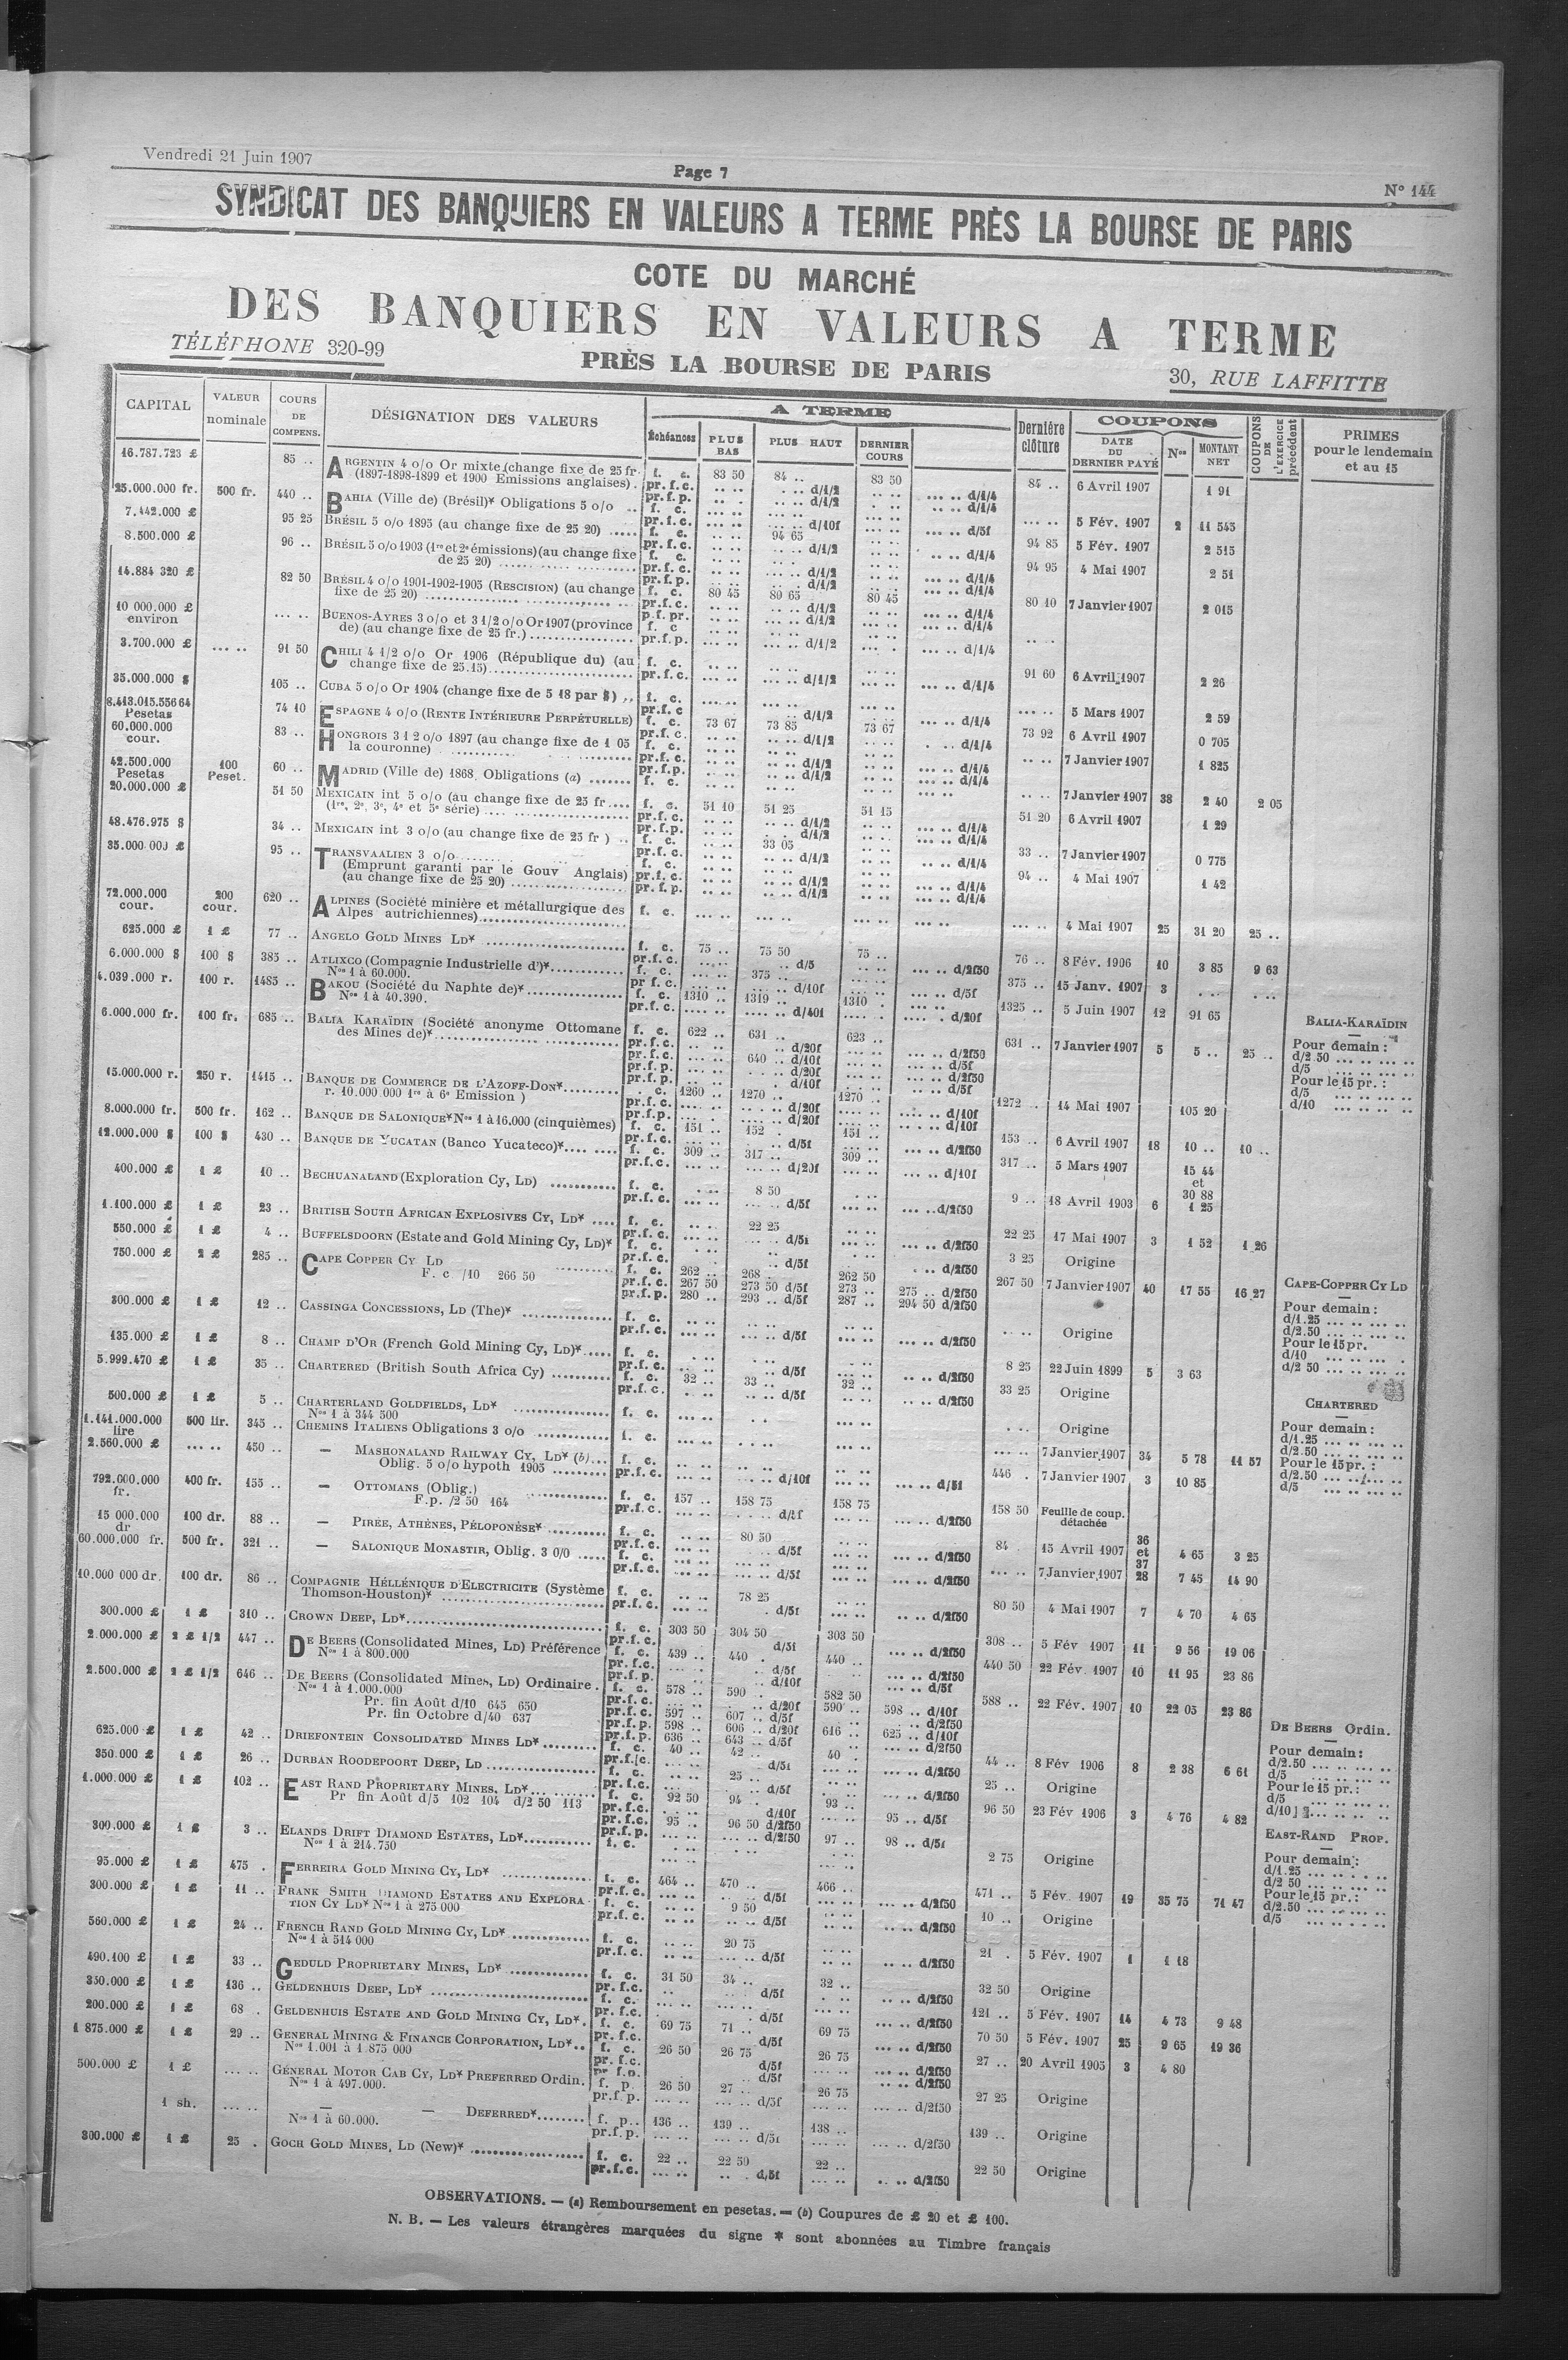 Vendredi 21 Juin 1907
Page 7
N° 144
SYNDICAT DES BANQUIERS EN VALEURS A TERME PRÈS LA BOURSE DE PARIS
COTE DU MARCHÉ
DES BANQUIERS EN VALEURS A TERME
TÉLÉPHONE 320-99
PRÈS LA BOURSE DE PARIS
30, RUE LAFFITTE
CAPITAL VALEUR nominale COURS DE COMPENS. DÉSIGNATION DES VALEURS A TERME Échéances PLUS BAS PLUS HAUT DERNIER COURS Dernière clôture COUPONS DATE DU DERNIER PAYÉ Nos MONTANT NET COUPONS DE L'EXERCICE précédent PRIMES pour le lendemain et au 15
16.787.723 £ 85 .. ARGENTIN 4 o/o Or mixte (change fixe de 25 fr. f. c. 83 50 84 .. 83 50 84 .. 6 Avril 1907 1 91
(1897-1898-1899 et 1900 Emissions anglaises). pr.f.c. d/1/2 d/1/4
25.000.000 fr. 500 fr. 440 .. BAHIA (Ville de) (Brésil)* Obligations 5 o/o .. f. c. 5 Fév. 1907 2 11 545
7.442.000 £ 95 25 BRÉSIL 5 o/o 1895 (au change fixe de 25 20) ..... f. c. 94 65 94 85 5 Fév. 1907 2 515
8.500.000 £ 96 .. BRÉSIL 5 o/o 1903 (1re et 2e émissions) (au change fixe f. c. 94 95 4 Mai 1907 2 51
de 25 20)
14.884 320 £ 82 50 BRÉSIL 4 o/o 1901-1902-1905 (RESCISION) (au change f. c. 80 45 80 65 80 45 80 10 7 Janvier 1907 2 015
fixe de 25 20)
10 000.000 £ environ BUENOS-AYRES 3 o/o et 3 1/2 o/o Or 1907 (province f. c
de) (au change fixe de 25 fr.) pr.f.p. d/1/2 d/1/4
3.700.000 £ 91 50 CHILI 4 1/2 o/o Or 1906 (République du) (au f. c. 91 60 6 Avril 1907 2 26
change fixe de 25.15) pr.f.c. d/1/2 d/1/4
35.000.000 $ 105 .. CUBA 5 o/o Or 1904 (change fixe de 5 18 par $) .. f. c. 5 Mars 1907 2 59
8.413.015.556 64 Pesetas 74 10 ESPAGNE 4 o/o (RENTE INTÉRIEURE PERPÉTUELLE) f. c. 73 67 73 85 73 67 73 92 6 Avril 1907 0 705
60.000.000 cour. 83 .. HONGROIS 3 1 2 o/o 1897 (au change fixe de 1 05 f. c. 7 Janvier 1907 1 825
la couronne)
42.500.000 Pesetas 100 Peset. 60 .. MADRID (Ville de) 1868 Obligations (a) ....... f. c. 7 Janvier 1907 38 2 40 2 05
20.000.000 £ 51 50 MEXICAIN int 5 o/o (au change fixe de 25 fr .... f. c. 51 10 51 25 51 15 51 20 6 Avril 1907 1 29
(1re, 2e, 3e, 4e et 5e série)
48.476.975 $ 34 .. MEXICAIN int 3 o/o (au change fixe de 25 fr ) .. f. c. 33 05 33 .. 7 Janvier 1907 0 775
35.000 000 £ 95 .. TRANSVAALIEN 3 o/o f. c. 94 .. 4 Mai 1907 1 42
(Emprunt garanti par le Gouv Anglais) pr.f.c. d/1/2 d/1/4
(au change fixe de 25 20) pr.f.p. d/1/2 d/1/4
72.000.000 cour. 200 cour. 620 .. ALPINES (Société minière et métallurgique des f. c. 4 Mai 1907 25 31 20 25 ..
Alpes autrichiennes)
625.000 £ 1 £ 77 .. ANGELO GOLD MINES LD* f. c. 75 .. 75 50 75 .. 76 .. 8 Fév. 1906 10 3 85 9 63
6.000.000 $ 100 $ 385 .. ATLIXCO (Compagnie Industrielle d')* f. c. 375 .. 375 .. 15 Janv. 1907 3
Nos 1 à 60.000.
4.039.000 r. 100 r. 1485 .. BAKOU (Société du Naphte de)* f. c. 1310 .. 1319 .. 1310 . 1325 .. 5 Juin 1907 12 91 65
Nos 1 à 40.390.
6.000.000 fr. 100 fr. 685 .. BALIA KARAÏDIN (Société anonyme Ottomane f. c. 622 .. 631 .. 623 .. 631 .. 7 Janvier 1907 5 5 .. 25 ..
des Mines de)* 640 .. d/10f
BALIA-KARAÏDIN
Pour demain :
d/2.50
d/5
Pour le 15 pr. :
d/5
d/10
15.000.000 r. 250 r. 1415 .. BANQUE DE COMMERCE DE L'AZOFF-DON* c. 1260 .. 1270 .. 1270 .. 1272 .. 14 Mai 1907 105 20
r. 10.000 000 1re à 6e Emission )
8.000.000 fr. 500 fr. 162 .. BANQUE DE SALONIQUE* Nos 1 à 16.000 (cinquièmes) f. c. 151 .. 152 . 151 .. 153 .. 6 Avril 1907 18 10 .. 10 ..
12.000.000 $ 100 $ 430 .. BANQUE DE YUCATAN (Banco Yucateco)* f. c. 309 .. 317 .. 309 .. 317 .. 5 Mars 1907 15 44 et 30 88
400.000 £ 1 £ 10 .. BECHUANALAND (Exploration Cy, LD) f. c. 8 50 9 .. 18 Avril 1903 6 1 25
1.100.000 £ 1 £ 23 .. BRITISH SOUTH AFRICAN EXPLOSIVES CY, LD* f. c. 22 25 22 25 17 Mai 1907 3 1 52 1 26
550.000 £ 1 £ 4 .. BUFFELSDOORN (Estate and Gold Mining Cy, LD)* f. c. 3 25 Origine
750.000 £ 2 £ 285 .. CAPE COPPER CY LD f. c. 262 .. 268 . 262 50 267 50 7 Janvier 1907 40 17 55 16 27
F. c /10 266 50 pr.f.c. 267 50 273 50 d/5f 273 .. 275 .. d/2f50
pr.f.p. 280 .. 293 .. d/5f 287 .. 294 50 d/2f50
CAPE-COPPER CY LD
Pour demain :
d/1.25
d/2.50
Pour le 15 pr.
d/10
d/2 50
300.000 £ 1 £ 12 .. CASSINGA CONCESSIONS, LD (The)* f. c. Origine
135.000 £ 1 £ 8 .. CHAMP D'OR (French Gold Mining Cy, LD)* f. c. 8 25 22 Juin 1899 5 3 63
5.999.470 £ 1 £ 35 .. CHARTERED (British South Africa Cy) f. c. 32 .. 33 .. 32 .. 33 25 Origine
500.000 £ 1 £ 5 .. CHARTERLAND GOLDFIELDS, LD* f. c. Origine
Nos 1 à 344 500
CHARTERED
Pour demain :
d/1.25
d/2.50
Pour le 15 pr. :
d/2.50
d/5
1.141.000.000 lire 500 lir. 345 .. CHEMINS ITALIENS Obligations 3 o/o f. c. 7 Janvier 1907 34 5 78 11 57
2.560.000 £ 450 .. — MASHONALAND RAILWAY CY, LD* (b) f. c. 446 . 7 Janvier 1907 3 10 85
Oblig. 5 o/o hypoth 1905
792.000.000 fr. 400 fr. 155 .. — OTTOMANS (Oblig.) f. c. 157 .. 158 75 158 75 158 50 Feuille de coup. détachée
F.p. /2 50 164
15 000.000 dr 100 dr. 88 .. — PIRÉE, ATHÈNES, PÉLOPONÈSE* f. c. 80 50 84 . 15 Avril 1907 36 et 37 4 65 3 25
60.000.000 fr. 500 fr. 321 .. — SALONIQUE MONASTIR, Oblig. 3 0/0 f. c. 7 Janvier 1907 28 7 45 14 90
10.000 000 dr. 100 dr. 86 .. COMPAGNIE HÉLLÉNIQUE D'ELECTRICITE (Système f. c. 78 25 80 50 4 Mai 1907 7 4 70 4 65
Thomson-Houston)*
300.000 £ 1 £ 310 .. CROWN DEEP, LD* f. c. 303 50 304 50 303 50 308 .. 5 Fév 1907 11 9 56 19 06
2.000.000 £ 2 £ 1/2 447 .. DE BEERS (Consolidated Mines, LD) Préférence f. c. 439 .. 440 . 440 .. 440 50 22 Fév. 1907 10 11 95 23 86
Nos 1 à 800.000
2.500.000 £ 2 £ 1/2 646 .. DE BEERS (Consolidated Mines, LD) Ordinaire . f. c. 578 .. 590 .. 582 50 588 .. 22 Fév. 1907 10 22 05 23 86
Nos 1 à 1.000.000
Pr. fin Août d/10 645 650
Pr. fin Octobre d/40 637
DE BEERS Ordin.
Pour demain :
d/2.50
d/5
Pour le 15 pr. :
d/5
d/10
625.000 £ 1 £ 42 .. DRIEFONTEIN CONSOLIDATED MINES LD* f. c. 40 .. 42 .. 40 . 44 .. 8 Fév 1906 8 2 38 6 61
350.000 £ 1 £ 26 .. DURBAN ROODEPOORT DEEP, LD f. c. 25 .. 25 .. Origine
1.000.000 £ 1 £ 102 .. EAST RAND PROPRIETARY MINES, LD* f. c. 92 50 94 . 93 .. 96 50 23 Fév 1906 3 4 76 4 82
Pr fin Août d/5 102 104 d/2 50 113
300.000 £ 1 £ 3 .. ELANDS DRIFT DIAMOND ESTATES, LD* f. c. 2 75 Origine
Nos 1 à 214.750
EAST-RAND PROP.
Pour demain :
d/1.25
d/2 50
Pour le 15 pr. :
d/2.50
d/5
95.000 £ 1 £ 475 . FERREIRA GOLD MINING CY, LD* f. c. 464 .. 470 .. 466 .. 471 .. 5 Fév. 1907 19 35 75 71 47
300.000 £ 1 £ 11 .. FRANK SMITH DIAMOND ESTATES AND EXPLORA- f. c. 9 50 10 .. Origine
TION CY LD* Nos 1 à 275 000
560.000 £ 1 £ 24 .. FRENCH RAND GOLD MINING CY, LD* f. c. 20 75 21 . 5 Fév. 1907 1 1 18
Nos 1 à 514 000
490.100 £ 1 £ 33 .. GEDULD PROPRIETARY MINES, LD* f. c. 31 50 34 .. 32 .. 32 50 Origine
350.000 £ 1 £ 136 .. GELDENHUIS DEEP, LD* f. c. 121 .. 5 Fév. 1907 14 4 73 9 48
200.000 £ 1 £ 68 . GELDENHUIS ESTATE AND GOLD MINING CY, LD* f. c. 69 75 71 .. 69 75 70 50 5 Fév. 1907 25 9 65 19 36
1 875.000 £ 1 £ 29 .. GENERAL MINING & FINANCE CORPORATION, LD* f. c. 26 50 26 75 26 75 27 .. 20 Avril 1905 3 4 80
Nos 1.001 à 1.875 000
500.000 £ 1 £ GÉNÉRAL MOTOR CAB CY, LD* PREFERRED Ordin. f. p. 26 50 27 .. 26 75 27 25 Origine
Nos 1 à 497.000. pr.f.p. d/5f d/2f50
1 sh. — — DEFERRED* f. p. 136 .. 139 .. 138 .. 139 .. Origine
Nos 1 à 60.000. pr.f.p. d/5f d/2f50
300.000 £ 1 £ 25 . GOCH GOLD MINES, LD (New)* f. c. 22 .. 22 50 22 .. 22 50 Origine
pr.f.c. d/5f d/2f50
OBSERVATIONS. — (a) Remboursement en pesetas. — (b) Coupures de £ 20 et £ 100.
N. B. — Les valeurs étrangères marquées du signe * sont abonnées au Timbre français